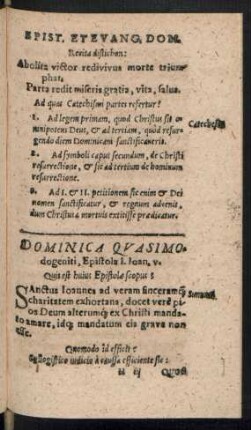 EPIST. ET EVANG. DOM.
Recita distichon:
Abolita victor redivivus morte trium-
phat,
Parta redit miseris gratia, vita, salus.
Ad quas Catechismi partes refertur?
1. Ad legem primam, quod Christus sit o-
mnipotens Deus, & ad tertiam, quòd resur-
gendo diem Dominicam sanctificaverit.
Catechesis
2. Ad symboli caput secundum, de Christi
resurrectione, & sic ad tertium de hominum
resurrectione.
3. Ad I. & II. petitionem sic enim & Dei
nomen sanctificatur, & regnum advenit,
dum Christus à mortuis extitisse prædicatur.
DOMINICA QVASIMO-
dogeniti, Epistola I. Ioan. v.
Quis est huius Epistolæ scopus?
SAnctus Ioannes ad veram sinceramq́;
charitatem exhortans, docet verè pi-
os Deum alterumq́; ex Christi manda-
to amare, idq́; mandatum eis grave non
esse.
Summa.
Quomodo id efficit?
Syllogistico iudicio à caussa efficiente sic:
H ij
Quod